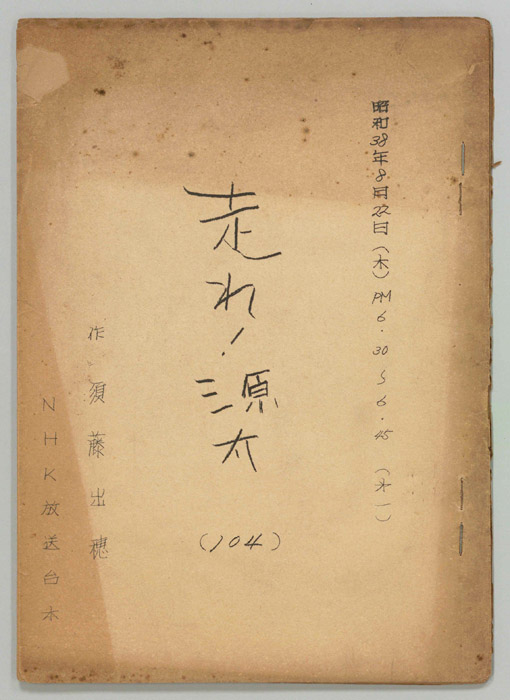 昭和38年8月22日(木)PM6.30〜6.45(才一)
走れ!源太
(104)
作 須藤出穂
NHK放送台本